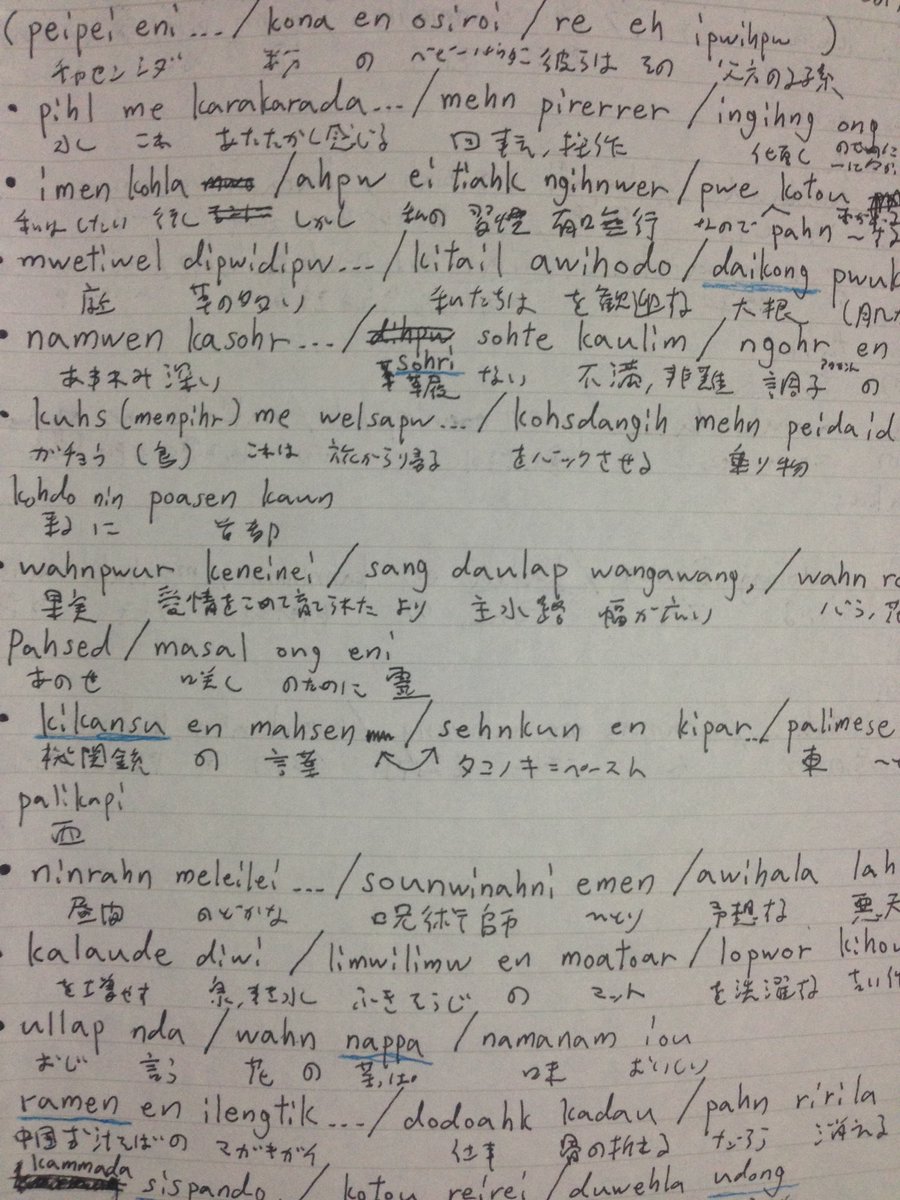 ( peipei eni ... / kona en osiroi / re eh ipwihpw )
の 彼らは その
• pihl me karakarada ... / mehn pirerrer / ingihng ong
水 これ あたたかく感じる 回転, 操作 傾く
• imen kohla / ahpw ei tiahk ngihnwer / pwe kotou
私はしたい 行く しかし 私の 習慣 なので pahn
• mwetiwel dipwidipw ... / kitail awihodo / daikong pwuk
庭 草の多い 私たちは 大根
• namwen kasohr ... / sohte kaulim / ngohr en
sohri
あわれみ深い 草履 ない 不満, 非難 調子 の
• kuhs (menpihr) me welsapw ... / kohsdangih mehn peidaid
ガチョウ (鳥) これは をバックさせる 乗り物
kohdo nin poasen kaun
に 首都
• wahnpwur keneinei / sang daulap wangawang, / wahn ro
果実 愛情をこめて育てられた より 主水路 幅が広い バラ,
Pahsed / masal ong eni
あのせ 咲く のために 霊
• kikansu en mahsen / sehnkun en kipar ... / palimese
機関銃 の 言葉 タコノキ=ペースト 東
palikapi
西
• ninrahn meleilei ... / sounwinahni emen / awihala lah
昼間 のどかな 呪術師 ひとり 悪天
• kalaude diwi / limwilimw en moatoar / lopwor kihou
を増やす ふきそうじ の マット を洗濯
• ullap nda / wahn nappa / namanam iou
おじ 言う 花 の 菜っぱ 味 おいしい
ramen en ilengtik ... / dodoahk kadau / pahn ririla
中国お汁そばの マガキガイ 仕事 骨の折れる だろう 消える
kammada
sispando / kotou reirei / duwehla udong